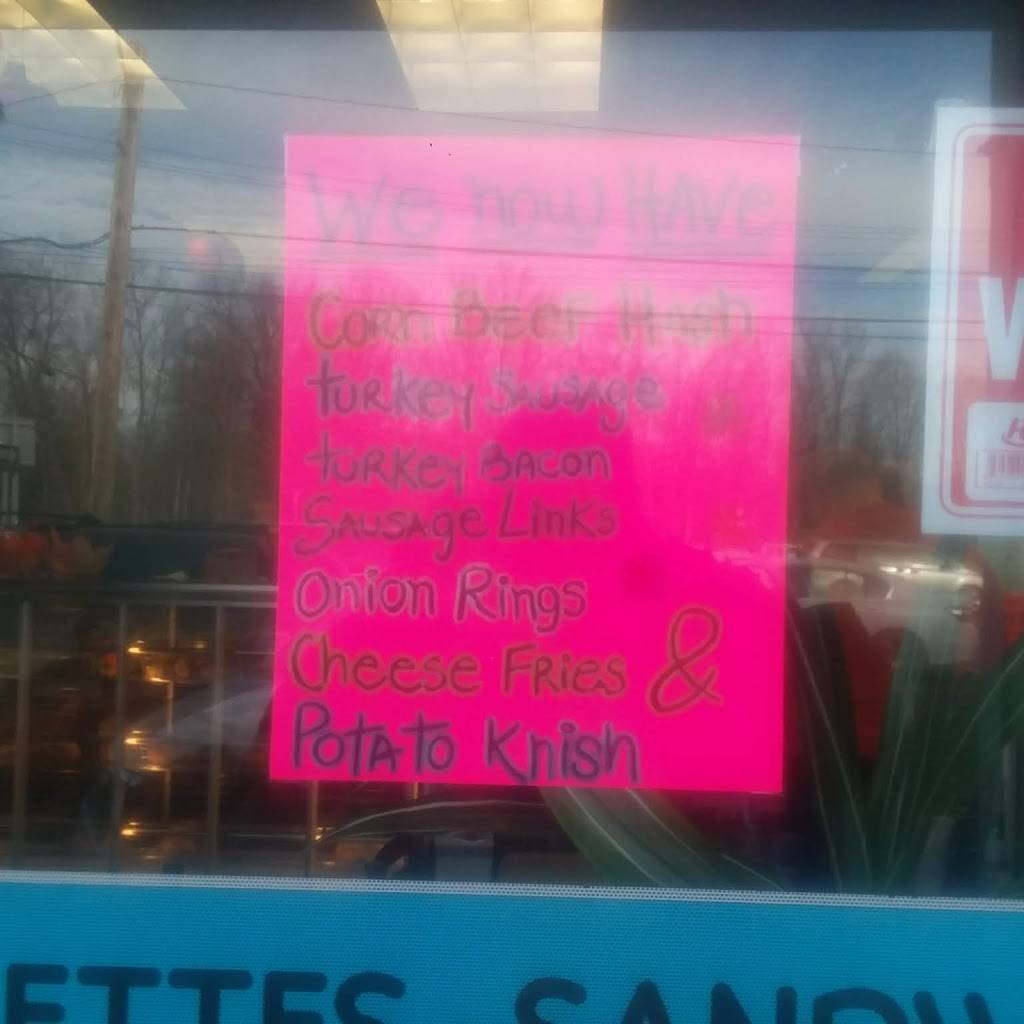 We now HAVE
Corn BEEF Hash
turkey Sausage
turkey Bacon
Sausage Links
Onion Rings
Cheese Fries &
Potato Knish